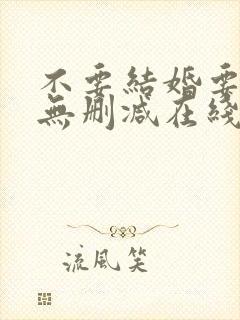 不要結婚要
無刪減在綫
流風笑